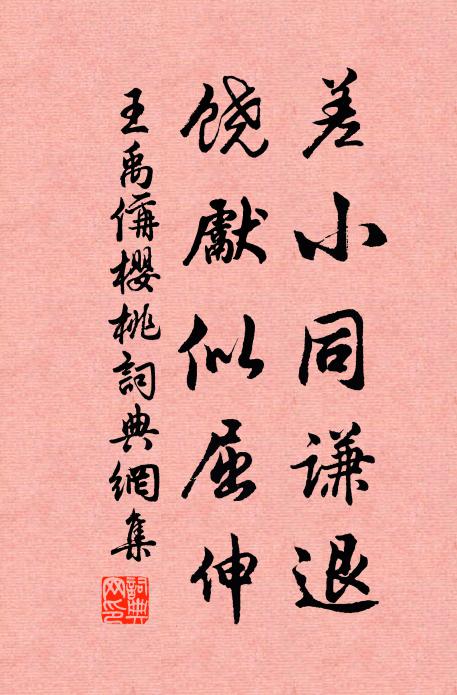 差小同谦退
饶献似屈伸
王禹偁樱桃词典網集
詞典网印